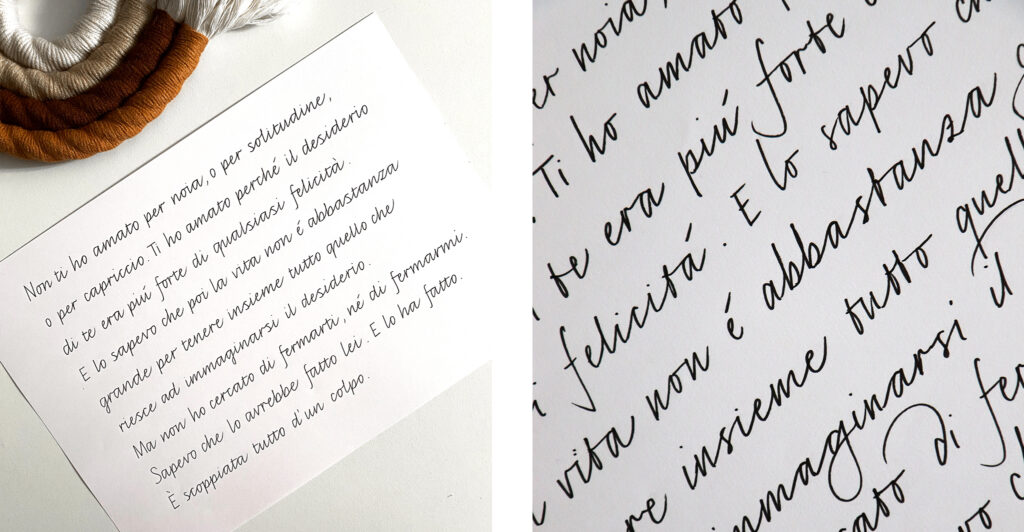 Non ti ho amato per noia, o per solitudine,
o per capriccio. Ti ho amato perché il desiderio
di te era piú forte di qualsiasi felicitá.
E lo sapevo che poi la vita non é abbastanza
grande per tenere insieme tutto quello che
riesce ad immaginarsi il desiderio.
Ma non ho cercato di fermarti, né di fermarmi.
Sapevo che lo avrebbe fatto lei. E lo ha fatto.
È scoppiata tutto d'un colpo.
er noia,
Ti ho amato
te era piú forte
felicitá. E lo sapevo
vita non é abbastanza
re insieme tutto quell
mmaginarsi il
cato di fer